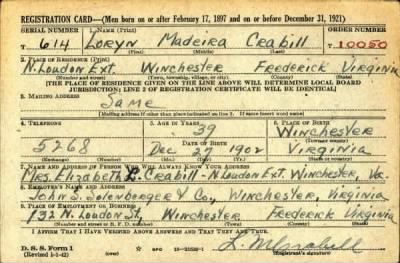 REGISTRATION CARD—(Men born on or after February 17, 1897 and on or before December 31, 1921)
SERIAL NUMBER 1. NAME (Print) ORDER NUMBER
T 614 Loryn Madeira Crabill T 10050
(First) (Middle) (Last)
2. PLACE OF RESIDENCE (Print)
N. Loudon Ext. Winchester Frederick Virginia
(Number and street) (Town, township, village, or city) (County) (State)
[THE PLACE OF RESIDENCE GIVEN ON THE LINE ABOVE WILL DETERMINE LOCAL BOARD
JURISDICTION; LINE 2 OF REGISTRATION CERTIFICATE WILL BE IDENTICAL]
3. MAILING ADDRESS
Same
[Mailing address if other than place indicated on line 2. If same insert word same]
4. TELEPHONE 5. AGE IN YEARS 6. PLACE OF BIRTH
39 Winchester
DATE OF BIRTH (Town or county)
5268 Dec 27 1902 Virginia
(Exchange) (Number) (Mo.) (Day) (Yr.) (State or country)
7. NAME AND ADDRESS OF PERSON WHO WILL ALWAYS KNOW YOUR ADDRESS
Mrs. Elizabeth L. Crabill - N Loudon Ext. Winchester, Va.
8. EMPLOYER'S NAME AND ADDRESS
John S. Solenberger & Co., Winchester, Virginia
9. PLACE OF EMPLOYMENT OR BUSINESS
132 N. Loudon St, Winchester Frederick Virginia
(Number and street or R. F. D. number) (Town) (County) (State)
I AFFIRM THAT I HAVE VERIFIED ABOVE ANSWERS AND THAT THEY ARE TRUE.
D. S. S. Form 1
(Revised 1-1-42) (over)
L. M. Crabill
(Registrant's signature)